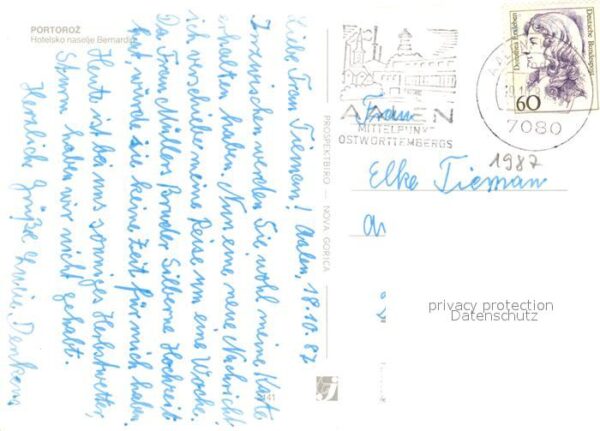 PORTOROŽ
Hotelsko naselje Bernardin
Aalen, 18.10.87
Liebe Frau Tieman!
Inzwischen werden Sie wohl meine Karte
erhalten haben. Nun eine neue Nachricht:
ich verschiebe meine Reise um eine Woche.
Da Frau Müllers Bruder Silberne Hochzeit
hat, würde sie keine Zeit für mich haben.
Heute ist bei uns sonniges Herbstwetter,
Sturm haben wir nicht gehabt.
Herzliche Grüße
PROSPEKTBIRO — NOVA GORICA
141
AALEN
MITTELPUNKT
OSTWÜRTTEMBERGS
Deutsche Bundespost
60
7080
1987
Frau
Elke Tieman
privacy protection
Datenschutz